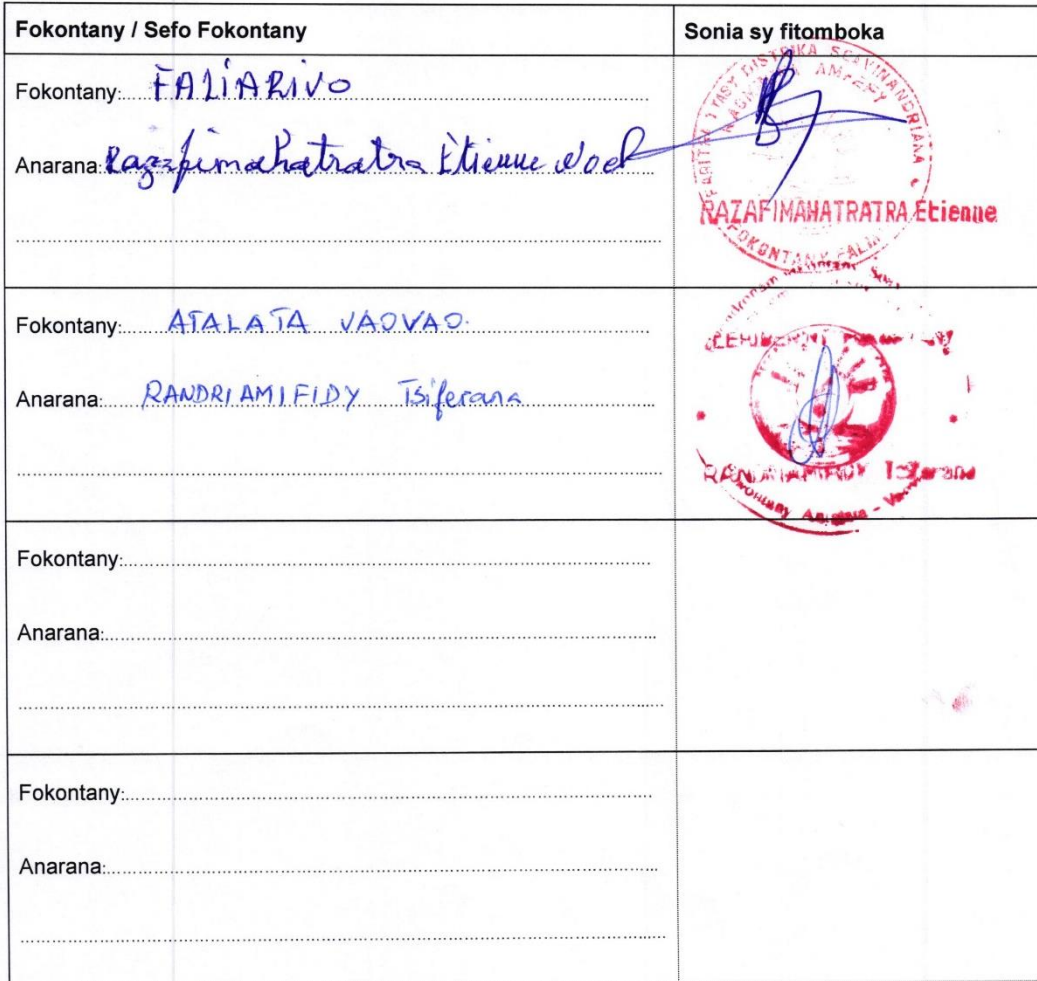 Fokontany / Sefo Fokontany
Sonia sy fitomboka
Fokontany: FALIARIVO
Anarana: Razafimahatratra Etienne Noel
FARITRA ITASY DISTRIKA SOAVINANDRIANA
AMPEFY
RAZAFIMAHATRATRA Etienne
FOKONTANY FALI
Fokontany: ATALATA VAOVAO.
Anarana: RANDRIAMIFIDY Tsiferana
RANDRIAMIFIDY Tsiferana
Fokontany:
Anarana:
Fokontany:
Anarana: